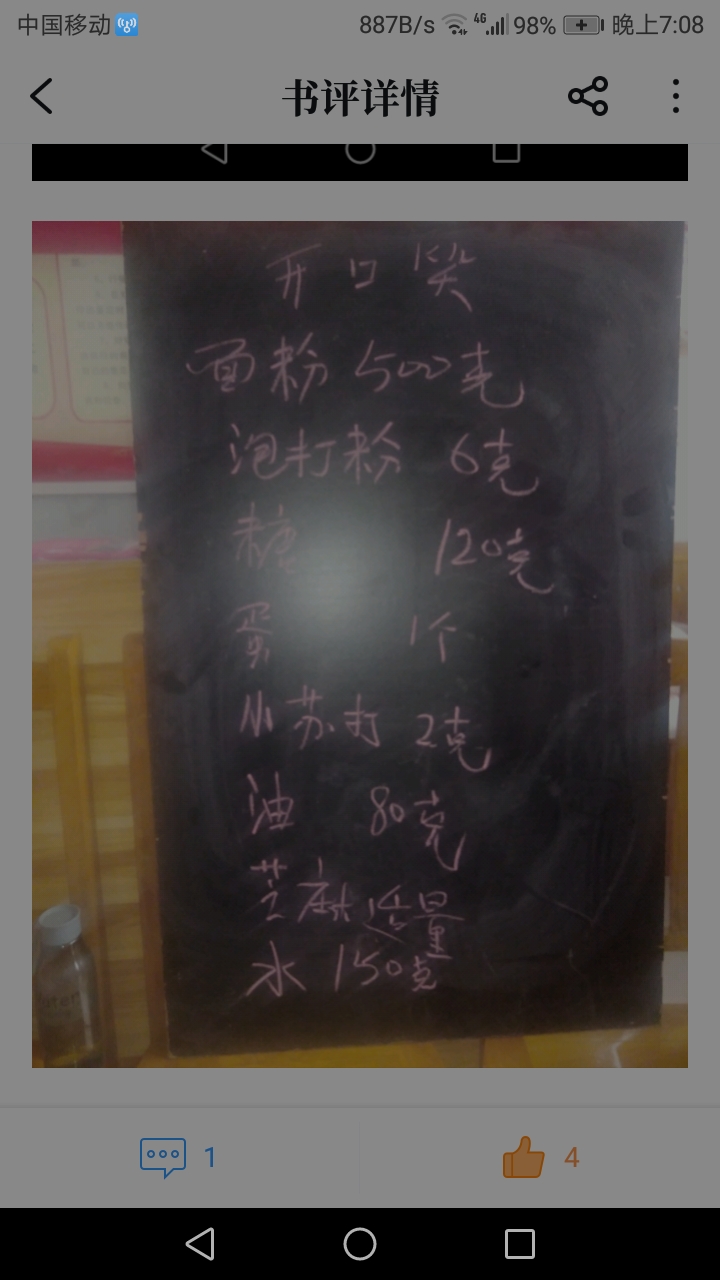 中国移动 887B/s 4G 98% 晚上7:08
书评详情
开口笑
面粉 500克
泡打粉 6克
糖 120克
蛋 1个
小苏打 2克
油 80克
芝麻适量
水 150克
1
4